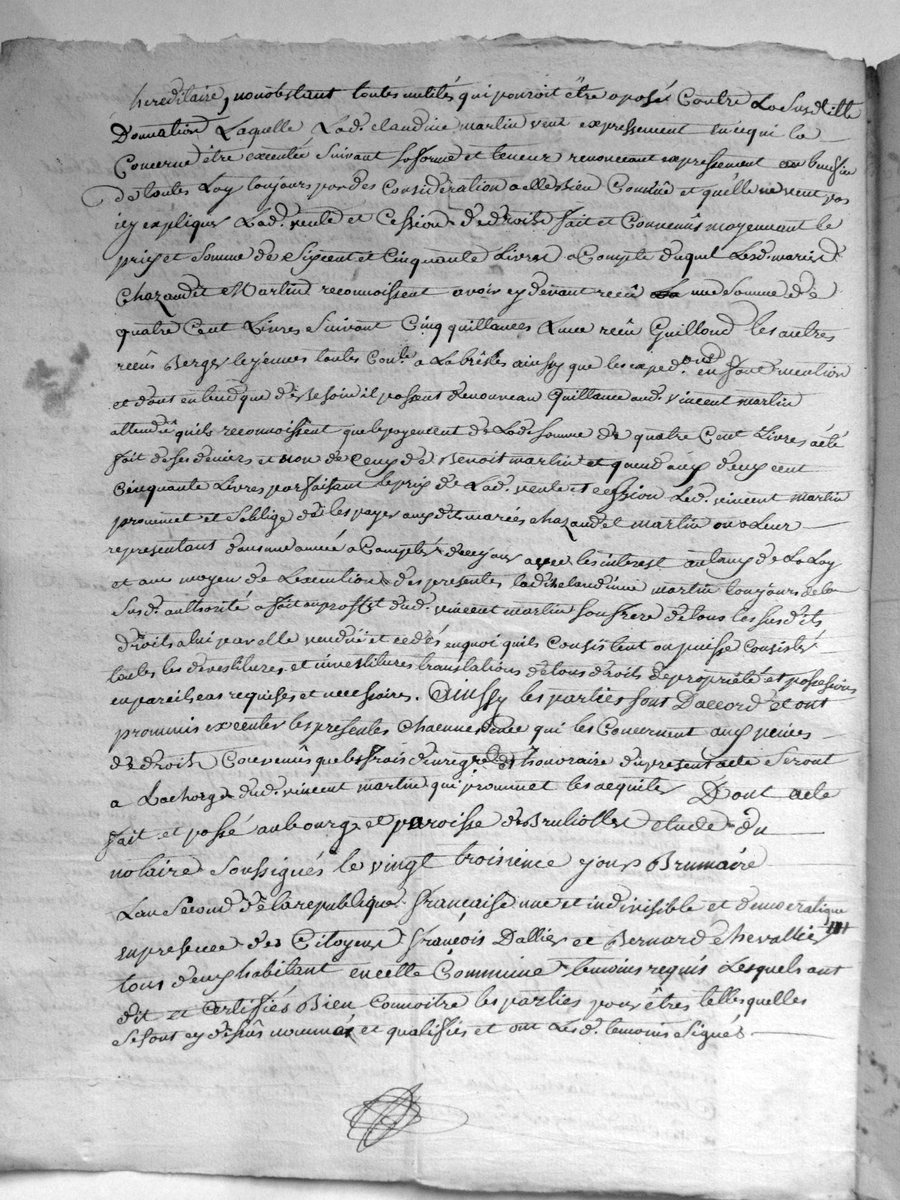 hereditaire, nonobstant toutes nulités qui pouroit être oposé Contre La Susditte
Donnation Laquelle Lad. claudine martin veut expressement en ce qui la
Concerne être executée suivant sa forme et teneur renonceant expressement au benefice
de toutes Loy toujours par des Considération a elle bien Connüe et qu'elle ne veut pas
icy expliquer Lad. vente et Cession de droits fait et Convenüs moyennant le
prix et Somme de Sixcent et Cinquante Livres a Compte duquel Lesd. mariés
Chazaud et Martin reconnoissent avoir cy devant recû une Somme de
quatre Cent Livres Suivant Cinq quittances L'une recû Guillond les autres
recûs Berger le jeunes toutes Conlé a Labresles ainssy que les exped.ons en font mention
et dont en tend que de Besoin il passent de nouveau Quittance aud. vincent martin
attendû qu'ils reconnoissent que le payement de Lad. Somme de quatre Cent Livres a été
fait de ses deniers et non de Ceux de Benoit martin et quand aux deux cent
Cinquante Livres parfaisant le prix de Lad. vente et cession Led. vincent martin
prommet et S'oblige de les payer aux dit mariés chazaud et martin ou a Leur
representant dans une année a Compter de ce jour avec les interest au taux de La Loy
et au moyen de L'execution des presentes ladite claudinne martin toujours de la
Susd. authorité a fait au proffit dud. vincent martin Son frere de tous les susdits
droits a lui par elle vendüe et cedés en quoi qu'ils Consistent ou puisse Consister
toutes les devestitures et investitures translations de tous droits de propriété et possessions
en pareil cas requises et necessaires. Ainssy les parties sont D'accord et ont
prommis executer les presentes Chacunne en ce qui les Concernent aux peines
de droits Convenûs que les frais d'enregr.t et honoraire du present acte Seront
a La charge dud. vincent martin qui prommet les acquiter Dont acte
fait et passé au bourg et paroisse de Brulliolles etude du
notaire Soussigués le vingt troisieme jour Brumaire
L'an Second de la republique française une et indivisible et democratique
en presence des Citoyens François Dallier et Bernard chevallier
tous deux habitant en celle Commune temoins requis Lesquels ont
dit et Certiffiés Bien Connoitre les parties pour êtres telles quelles
Se sont cy dessûs nommés et qualifiés et ont Lesd. temoins Signés